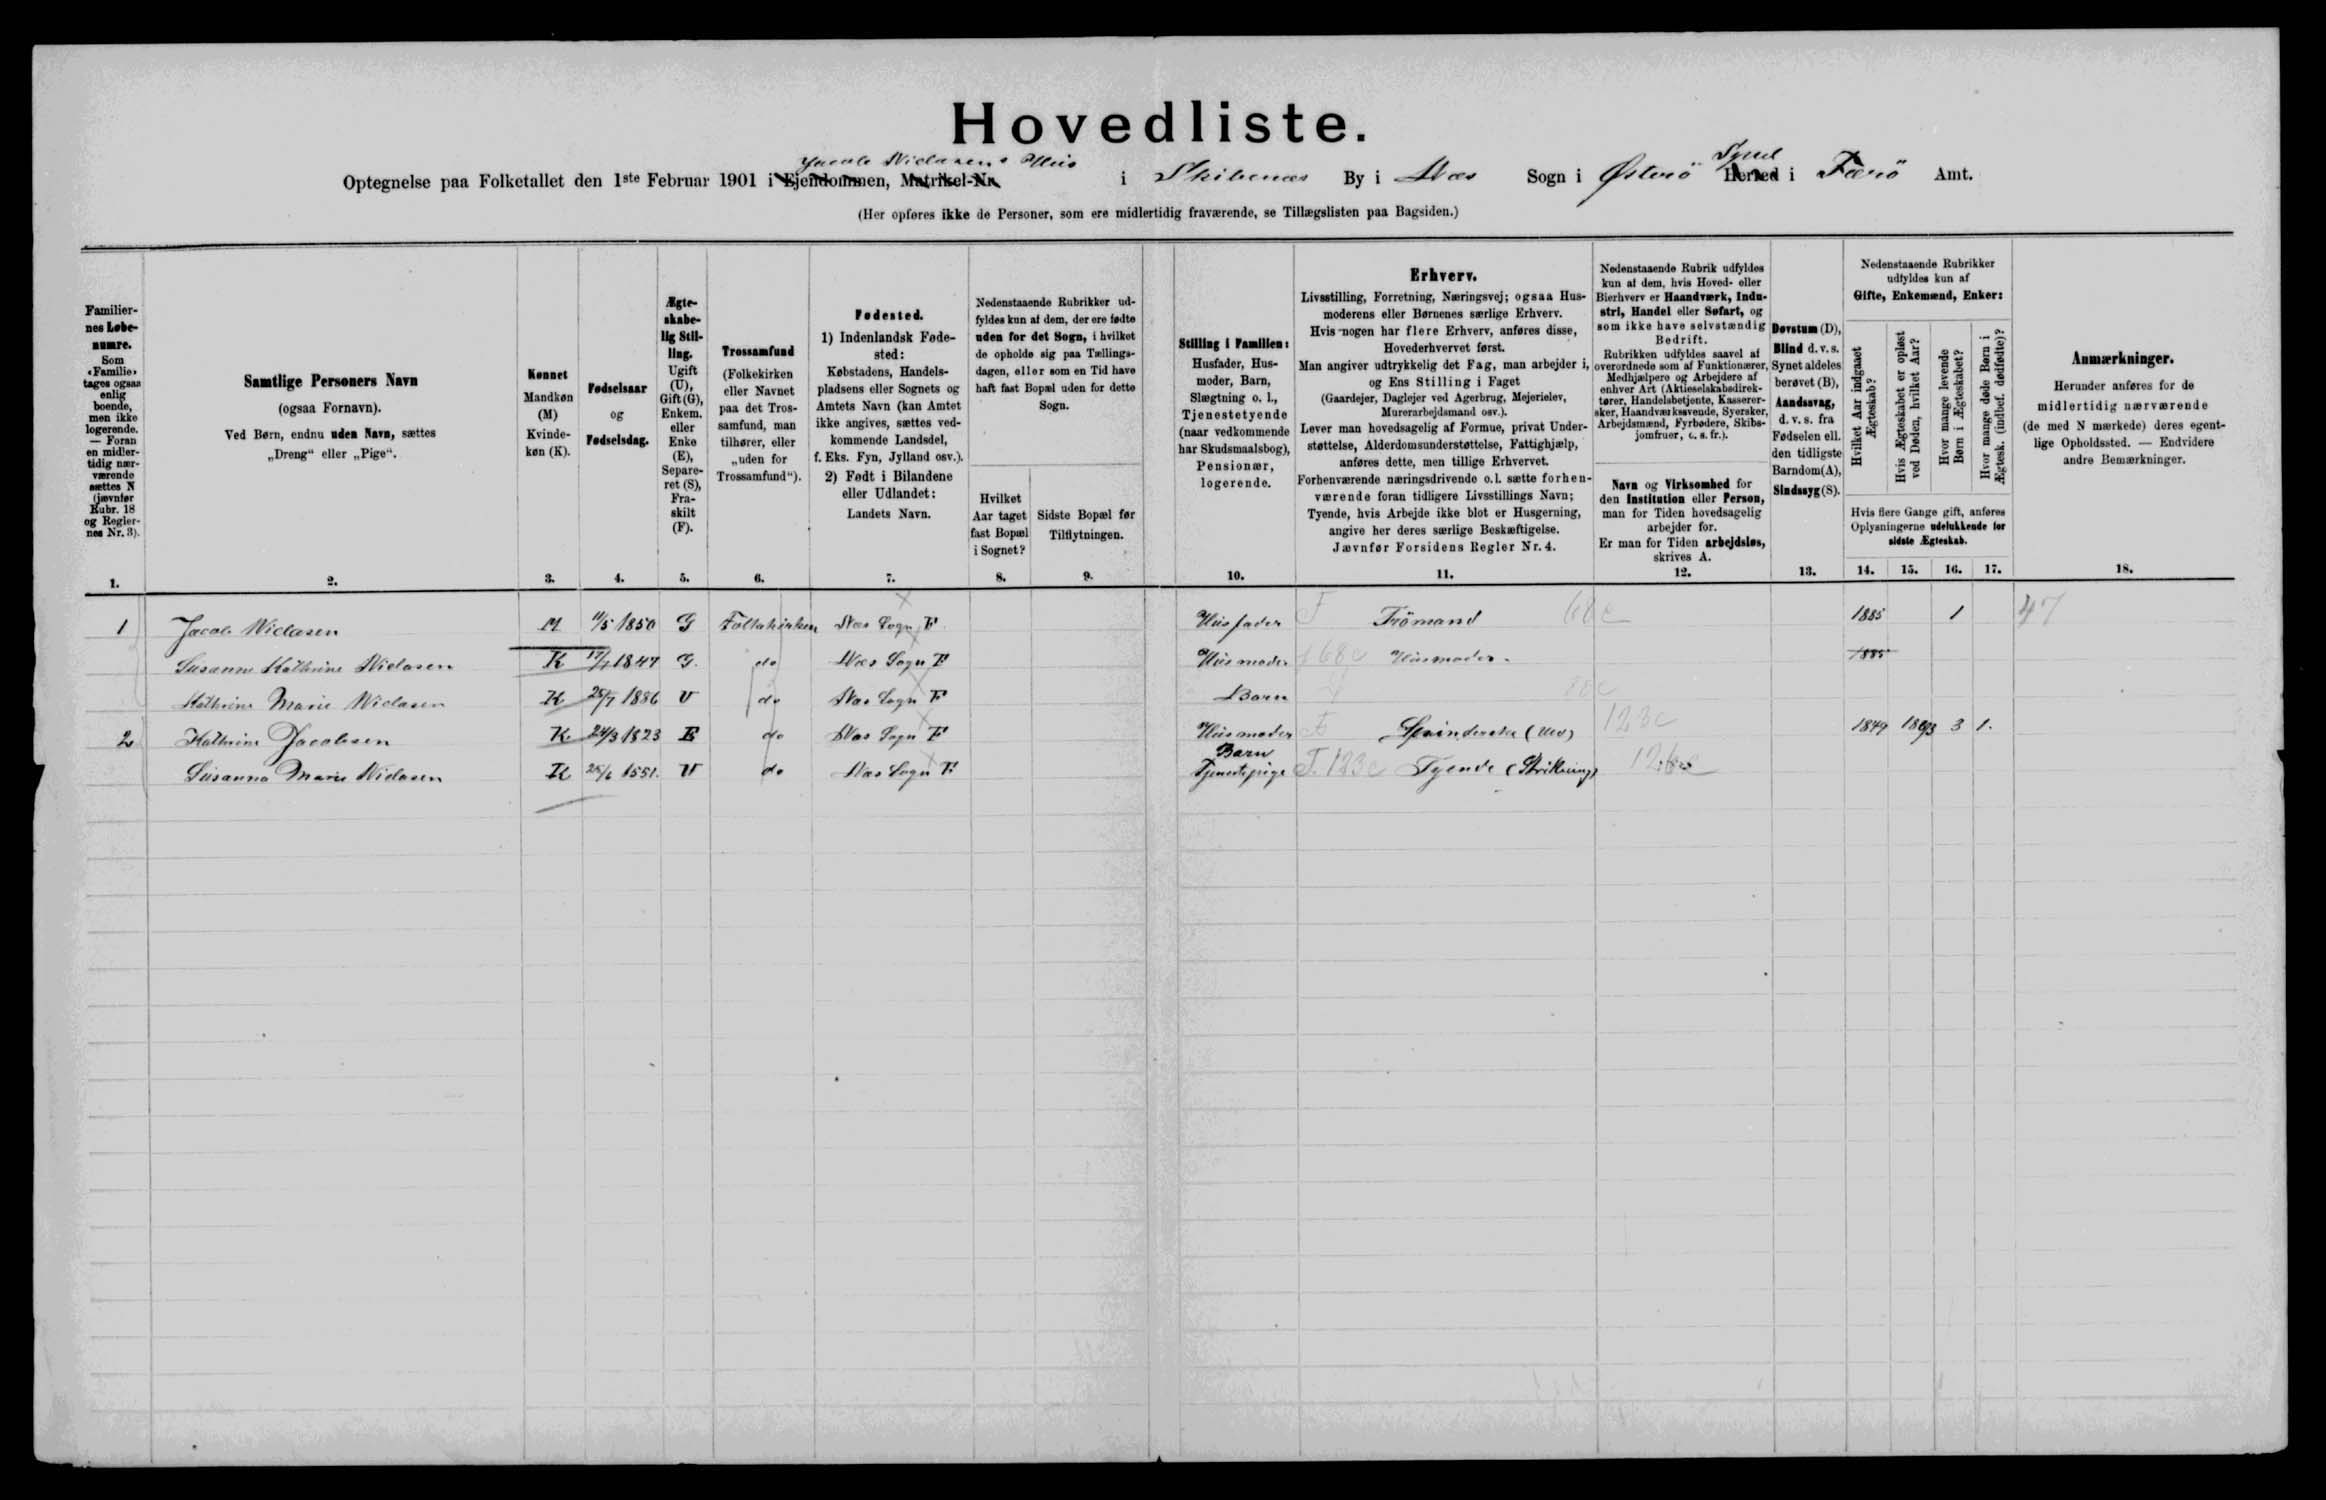 Hovedliste.
Jacob Niclasens Hus
Syssel
Optegnelse paa Folketallet den 1ste Februar 1901 i Ejendommen, Matrikel-Nr. i Skibenæs By i Næs Sogn i Østerö Herred i Færö Amt.
(Her opføres ikke de Personer, som ere midlertidig fraværende, se Tillægslisten paa Bagsiden.)
Familier-
nes Løbe-
numre.
Som
«Familie»
tages ogsaa
enlig
boende,
men ikke
logerende.
— Foran
en midler-
tidig nær-
værende
sættes N
(jævnfør
Rubr. 18
og Regler-
nes Nr. 3).
1.
Samtlige Personers Navn
(ogsaa Fornavn).
Ved Børn, endnu uden Navn, sættes
„Dreng“ eller „Pige“.
2.
Kønnet
Mandkøn
(M)
Kvinde-
køn (K).
3.
Fødselsaar
og
Fødselsdag.
4.
Ægte-
skabe-
lig Stil-
ling.
Ugift
(U),
Gift (G),
Enkem.
eller
Enke
(E),
Separe-
ret (S),
Fra-
skilt
(F).
5.
Trossamfund
(Folkekirken
eller Navnet
paa det Tros-
samfund, man
tilhører, eller
„uden for
Trossamfund“).
6.
Fødested.
1) Indenlandsk Føde-
sted:
Købstadens, Handels-
pladsens eller Sognets og
Amtets Navn (kan Amtet
ikke angives, sættes ved-
kommende Landsdel,
f. Eks. Fyn, Jylland osv.).
2) Født i Bilandene
eller Udlandet:
Landets Navn.
7.
Nedenstaaende Rubrikker ud-
fyldes kun af dem, der ere fødte
uden for det Sogn, i hvilket
de opholde sig paa Tællings-
dagen, eller som en Tid have
haft fast Bopæl uden for dette
Sogn.
Hvilket
Aar taget
fast Bopæl
i Sognet?
8.
Sidste Bopæl før
Tilflytningen.
9.
Stilling i Familien:
Husfader, Hus-
moder, Barn,
Slægtning o. l.,
Tjenestetyende
(naar vedkommende
har Skudsmaalsbog),
Pensionær,
logerende.
10.
Erhverv.
Livsstilling, Forretning, Næringsvej; ogsaa Hus-
moderens eller Børnenes særlige Erhverv.
Hvis nogen har flere Erhverv, anføres disse,
Hovederhvervet først.
Man angiver udtrykkelig det Fag, man arbejder i,
og Ens Stilling i Faget
(Gaardejer, Daglejer ved Agerbrug, Mejerielev,
Murerarbejdsmand osv.).
Lever man hovedsagelig af Formue, privat Under-
støttelse, Alderdomsunderstøttelse, Fattighjælp,
anføres dette, men tillige Erhvervet.
Forhenværende næringsdrivende o.l. sætte forhen-
værende foran tidligere Livsstillings Navn;
Tyende, hvis Arbejde ikke blot er Husgerning,
angive her deres særlige Beskæftigelse.
Jævnfør Forsidens Regler Nr. 4.
11.
Nedenstaaende Rubrik udfyldes
kun af dem, hvis Hoved- eller
Bierhverv er Haandværk, Indu-
stri, Handel eller Søfart, og
som ikke have selvstændig
Bedrift.
Rubrikken udfyldes saavel af
overordnede som af Funktionærer,
Medhjælpere og Arbejdere af
enhver Art (Aktieselskabsdirek-
tører, Handelsbetjente, Kasserer-
sker, Haandværkssvende, Syersker,
Arbejdsmænd, Fyrbødere, Skibs-
jomfruer, o. s. fr.).
Navn og Virksomhed for
den Institution eller Person,
man for Tiden hovedsagelig
arbejder for.
Er man for Tiden arbejdsløs,
skrives A.
12.
Døvstum (D),
Blind d. v. s.
Synet aldeles
berøvet (B),
Aandssvag,
d. v. s. fra
Fødselen ell.
den tidligste
Barndom (A),
Sindssyg (S).
13.
Nedenstaaende Rubrikker
udfyldes kun af
Gifte, Enkemænd, Enker:
Hvilket Aar indgaaet
Ægteskab?
Hvis Ægteskabet er opløst
ved Døden, hvilket Aar?
Hvor mange levende
Børn i Ægteskabet?
Hvor mange døde Børn i
Ægtesk. (indbef. dødfødte)?
Hvis flere Gange gift, anføres
Oplysningerne udelukkende for
sidste Ægteskab.
14. 15. 16. 17.
Anmærkninger.
Herunder anføres for de
midlertidig nærværende
(de med N mærkede) deres egent-
lige Opholdssted. — Endvidere
andre Bemærkninger.
18.
1 Jacob Niclasen M 11/5 1850 G Folkekirken Næs Sogn F. Husfader F Trömand 68c 1885 1 47
Susanne Kathrine Niclasen K 1847 G. do Næs Sogn F Husmoder 68c Husmoder. 1885
Kathrine Marie Niclasen K 25/7 1886 U do Næs Sogn F Barn
2 Kathrine Jacobsen K 24/3 1823 E do Næs Sogn F Husmoder F Spinderske (Uld) 123c 1849 1893 3 1.
Barn
Susanna Marie Niclasen K 25/6 1851. U do Næs Sogn F. Tjenestepige F. 123c Tyende (Strikning)